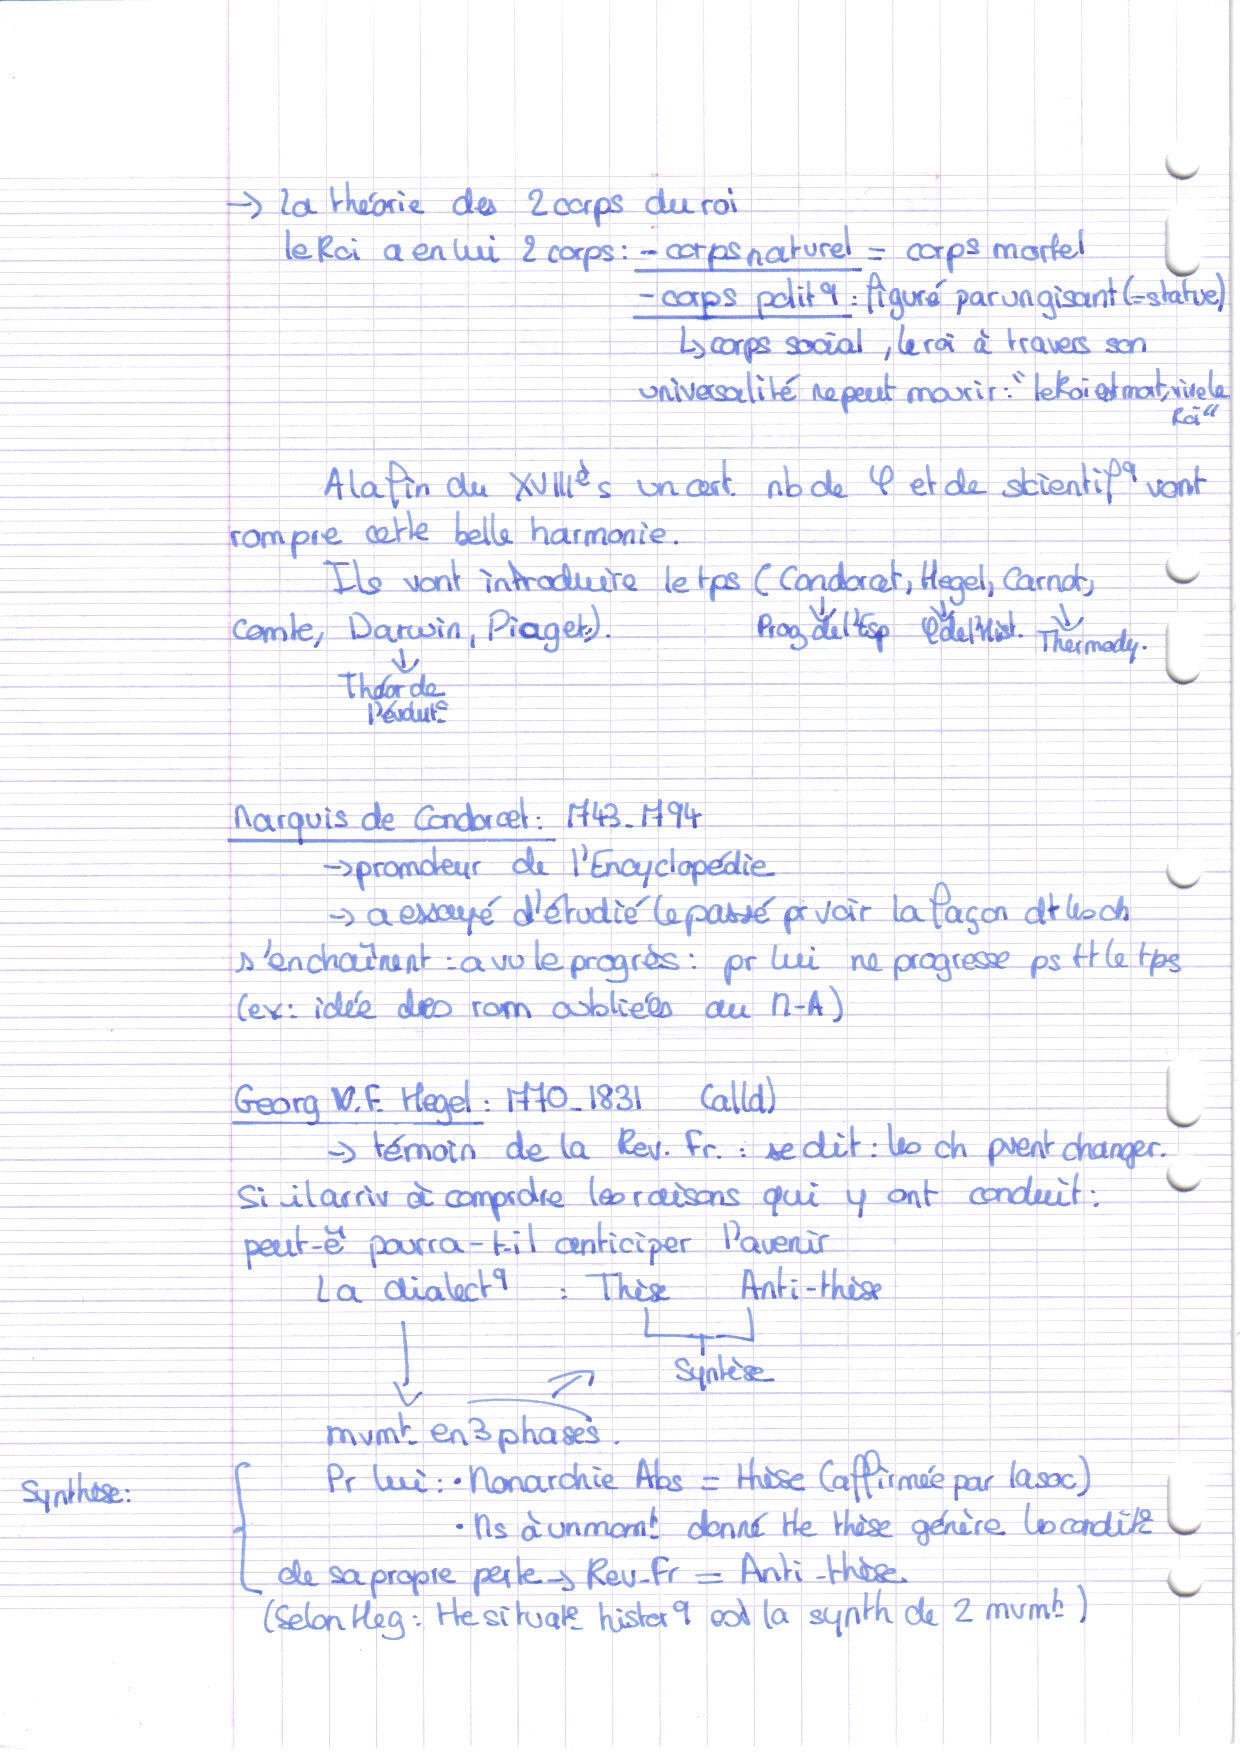 → la théorie des 2 corps du roi
le Roi a en lui 2 corps : - corps naturel = corps mortel
- corps polit q : figuré par un gisant (= statue)
↳ corps social, le roi à travers son
universalité ne peut mourir : "le Roi est mort, vive le
Roi"
A la fin du XVIIIè s un cert. nb de φ et de scientif q vont
rompre cette belle harmonie.
Ils vont introduire le tps (Condorcet, Hegel, Carnot,
Comte, Darwin, Piaget).
Prog de l'Esp φ de l'Hist. Thermody.
Théor de
l'évolut°
Marquis de Condorcet : 1743-1794
→ promoteur de l'Encyclopédie
→ a essayé d'étudié le passé pr voir la façon dt les ch
s'enchaînent : a vu le progrès : pr lui ne progresse ps tt le tps
(ex : idée des rom oubliées au M-A)
Georg W.F. Hegel : 1770-1831 (alld)
→ témoin de la Rev. Fr. : se dit : les ch pvent changer.
Si il arriv à comprdre les raisons qui y ont conduit :
peut-ê pourra-t-il anticiper l'avenir
La dialect q : Thèse Anti-thèse
Syntèse
mvmt en 3 phases.
Synthèse :
Pr lui : • Monarchie Abs = thèse (affirmée par la soc)
• Ms à un momt donné tte thèse génère les condit°
de sa propre perte → Rev-Fr = Anti-thèse.
(Selon Heg : tte situat° histor q est la synth de 2 mvmt)